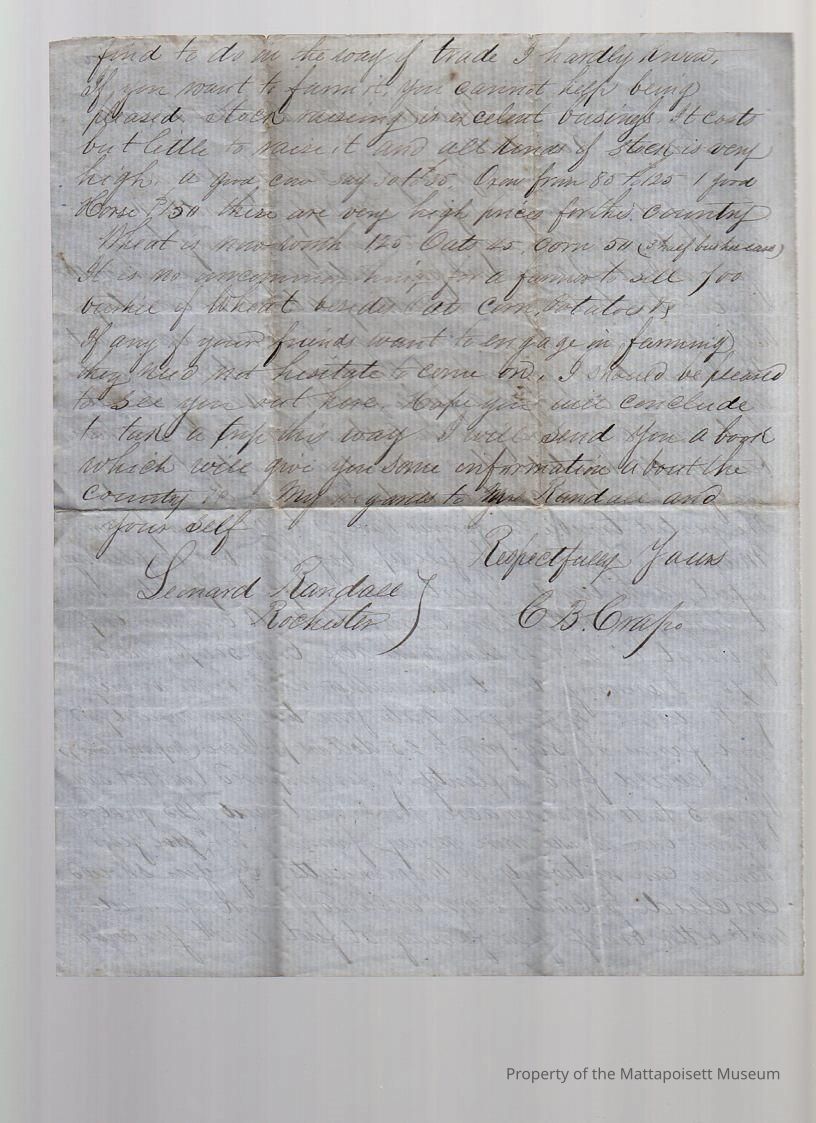 find to do in the way of trade I hardly know,
If you want to farm it, you cannot help being
pleased. Stock raising is excelent business. It costs
but little to raise it and all kinds of stock is very
high. a good cow say 30 to 35. Oxen from 80 to 125 1 good
Horse $150 these are very high prices for this country
Wheat is now worth 125 Oats 45. Corn 50
It is no uncommon thing for a farmer to sell 700
bushel of Wheat besides Oats Corn, Potatoes &c
If any of your friends want to engage in farming
they need not hesitate to come on. I should be pleased
to see you out here. Hope you will conclude
to take a trip this way I will send you a book
which will give you some information about the
county &c My regards to Mrs Randall and
your self
Respectfully Yours
Leonard Randall
Rochester
C. B. Crapo
Property of the Mattapoisett Museum